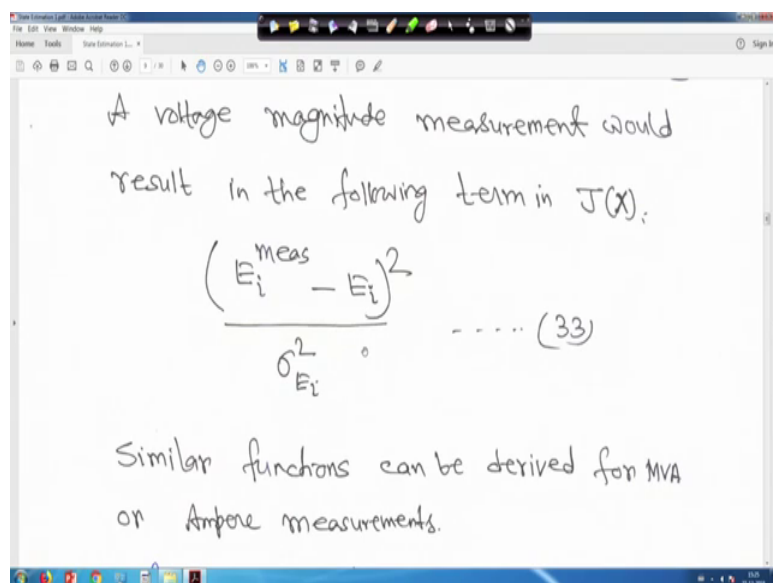 State Estimation 1.pdf - Adobe Acrobat Reader DC
File Edit View Window Help
Home Tools State Estimation 1... × Sign In
A voltage magnitude measurement would
result in the following term in J(X).
(E_i^meas - E_i)^2
σ^2_E_i ..... (33)
Similar functions can be derived for MVA
or Ampere measurements.